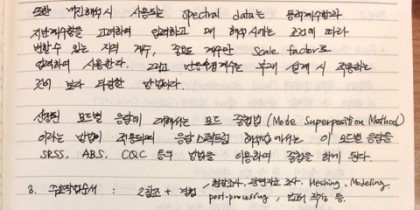 또한 내진해석시 사용되는 Spectral data는 동적계수항과
지반계수항을 고려하여 입력하고 매 해석시마다 조건에 따라
변할 수 있는 지역 계수, 중요도 계수만 Scale factor로
입력하여 사용한다. 그리고 반응수정계수는 부재 설계 시 적용하는
것이 보다 타당한 방법이다.
산정된 모드별 응답에 대해서는 모드 중첩법 (Mode Superposition Method)
이라는 방법이 적용되며 응답스펙트럼 해석법에서는 이 모드별 응답을
SRSS, ABS, CQC 등의 방법을 이용하여 중첩을 하게 된다.
3. 구조 : + Meshing, Modeling,
post-processing,